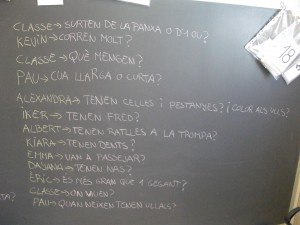 CLASSE → SURTEN DE LA PANXA O D'1 OU?
KEVIN → CORREN MOLT?
CLASSE → QUÈ MENGEN?
PAU → CUA LLARGA O CURTA?
ALEXANDRA → TENEN CELLES i PESTANYES? i COLOR ALS ULLS?
IKER → TENEN FRED?
ALBERT → TENEN RATLLES A LA TROMPA?
KIARA → TENEN DENTS?
EMMA → VAN A PASSEJAR?
DAYANA → TENEN NAS?
ÈRIC → ÉS MÉS GRAN QUE 1 GEGANT?
CLASSE → ON VIUEN?
PAU → QUAN NEIXEN TENEN ULLALS?